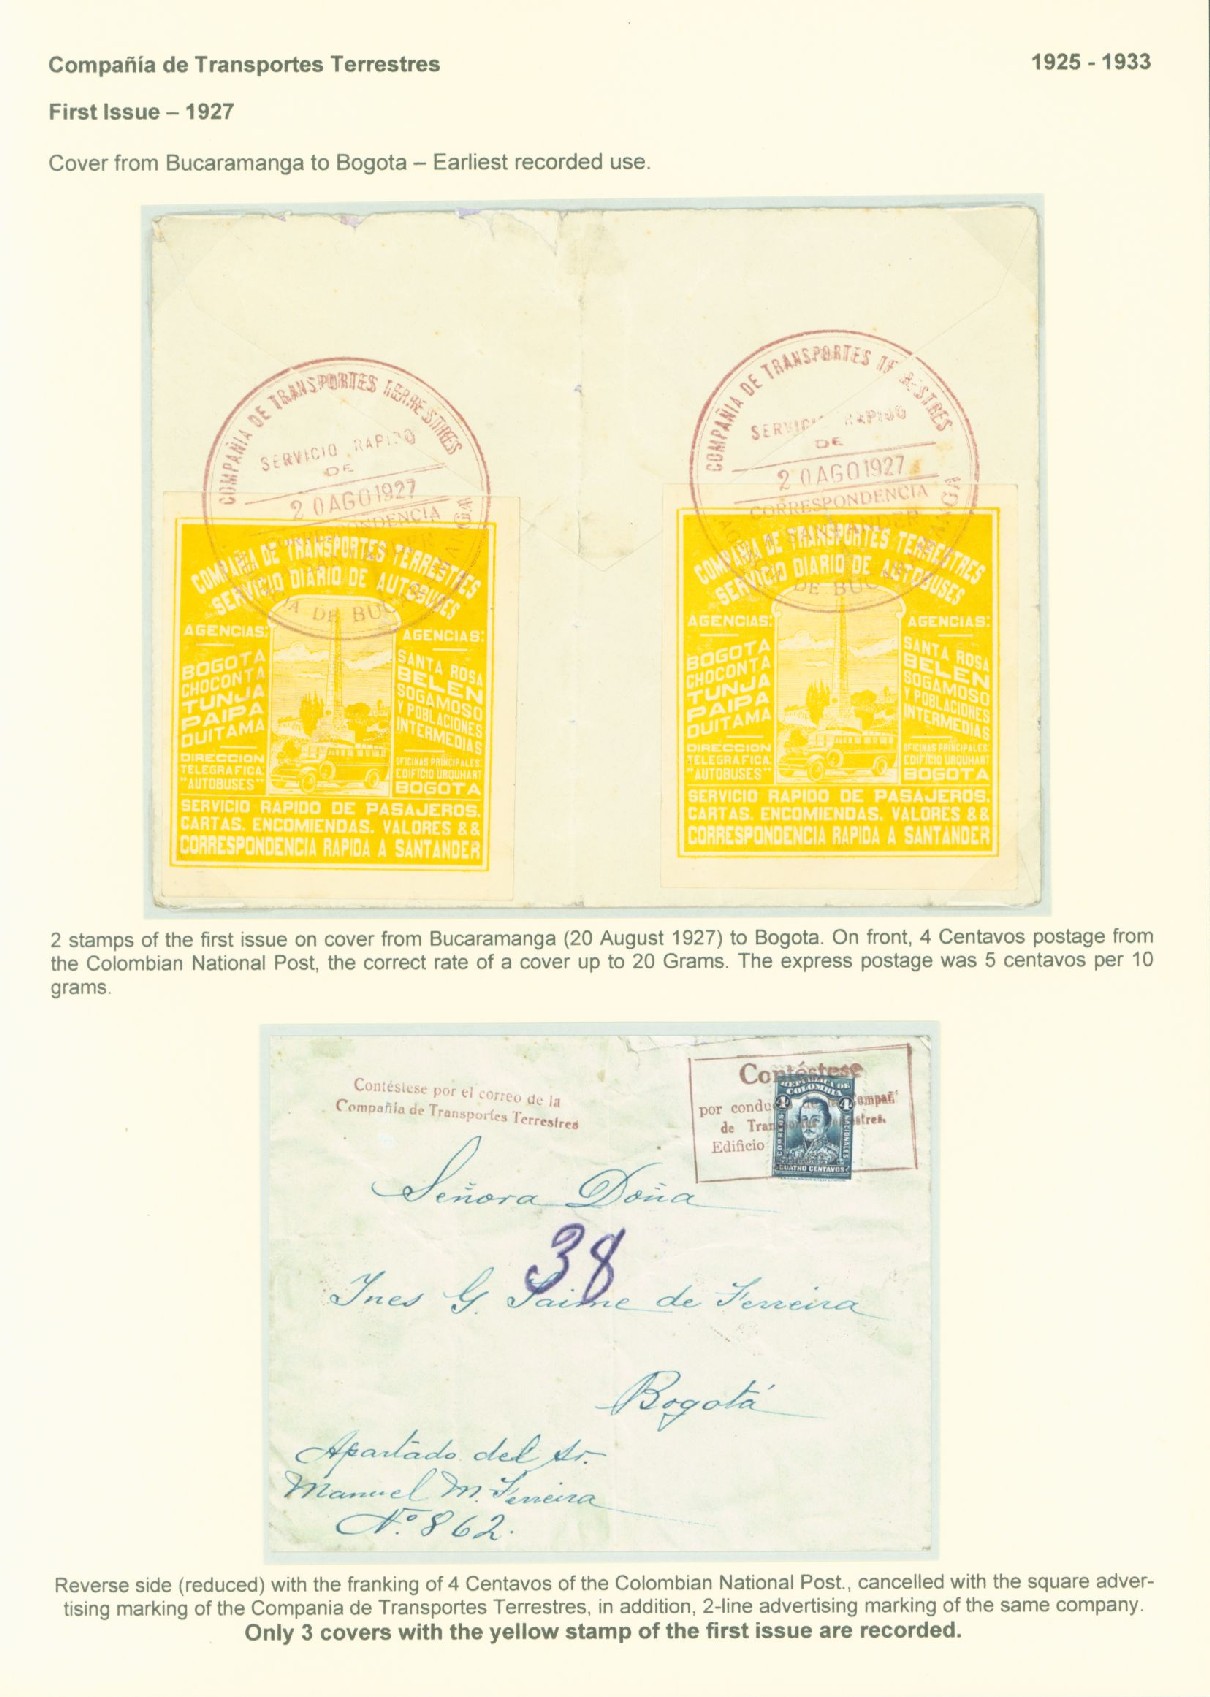 Compañía de Transportes Terrestres
1925 - 1933
First Issue – 1927
Cover from Bucaramanga to Bogota – Earliest recorded use.
COMPAÑIA DE TRANSPORTES TERRESTRES
SERVICIO RAPIDO
DE
20 AGO 1927
CORRESPONDENCIA
DE BUC
COMPAÑIA DE TRANSPORTES TERRESTRES
SERVICIO DIARIO DE AUTOBUSES
AGENCIAS:
BOGOTA
CHOCONTA
TUNJA
PAIPA
DUITAMA
AGENCIAS:
SANTA ROSA
BELEN
SOGAMOSO
Y POBLACIONES
INTERMEDIAS
DIRECCION
TELEGRAFICA
"AUTOBUSES"
OFICINAS PRINCIPALES
EDIFICIO URQUHART
BOGOTA
SERVICIO RAPIDO DE PASAJEROS.
CARTAS. ENCOMIENDAS. VALORES &&
CORRESPONDENCIA RAPIDA A SANTANDER
COMPAÑIA DE TRANSPORTES TERRESTRES
SERVICIO RAPIDO
DE
20 AGO 1927
CORRESPONDENCIA
DE BUC
COMPAÑIA DE TRANSPORTES TERRESTRES
SERVICIO DIARIO DE AUTOBUSES
AGENCIAS:
BOGOTA
CHOCONTA
TUNJA
PAIPA
DUITAMA
AGENCIAS:
SANTA ROSA
BELEN
SOGAMOSO
Y POBLACIONES
INTERMEDIAS
DIRECCION
TELEGRAFICA
"AUTOBUSES"
OFICINAS PRINCIPALES
EDIFICIO URQUHART
BOGOTA
SERVICIO RAPIDO DE PASAJEROS.
CARTAS. ENCOMIENDAS. VALORES &&
CORRESPONDENCIA RAPIDA A SANTANDER
2 stamps of the first issue on cover from Bucaramanga (20 August 1927) to Bogota. On front, 4 Centavos postage from
the Colombian National Post, the correct rate of a cover up to 20 Grams. The express postage was 5 centavos per 10
grams.
Contéstese por el correo de la
Compañía de Transportes Terrestres
Contéstese
por condu
de Tran
Edificio
REPUBLICA DE
COLOMBIA
4 4
CORREOS NACIONALES
CUATRO CENTAVOS
Señora Doña
38
Ines G. Jaime de Ferreira
Bogotá
Apartado del Sr.
Manuel M. Ferreira
Nº 862.
Reverse side (reduced) with the franking of 4 Centavos of the Colombian National Post., cancelled with the square adver-
tising marking of the Compania de Transportes Terrestres, in addition, 2-line advertising marking of the same company.
Only 3 covers with the yellow stamp of the first issue are recorded.